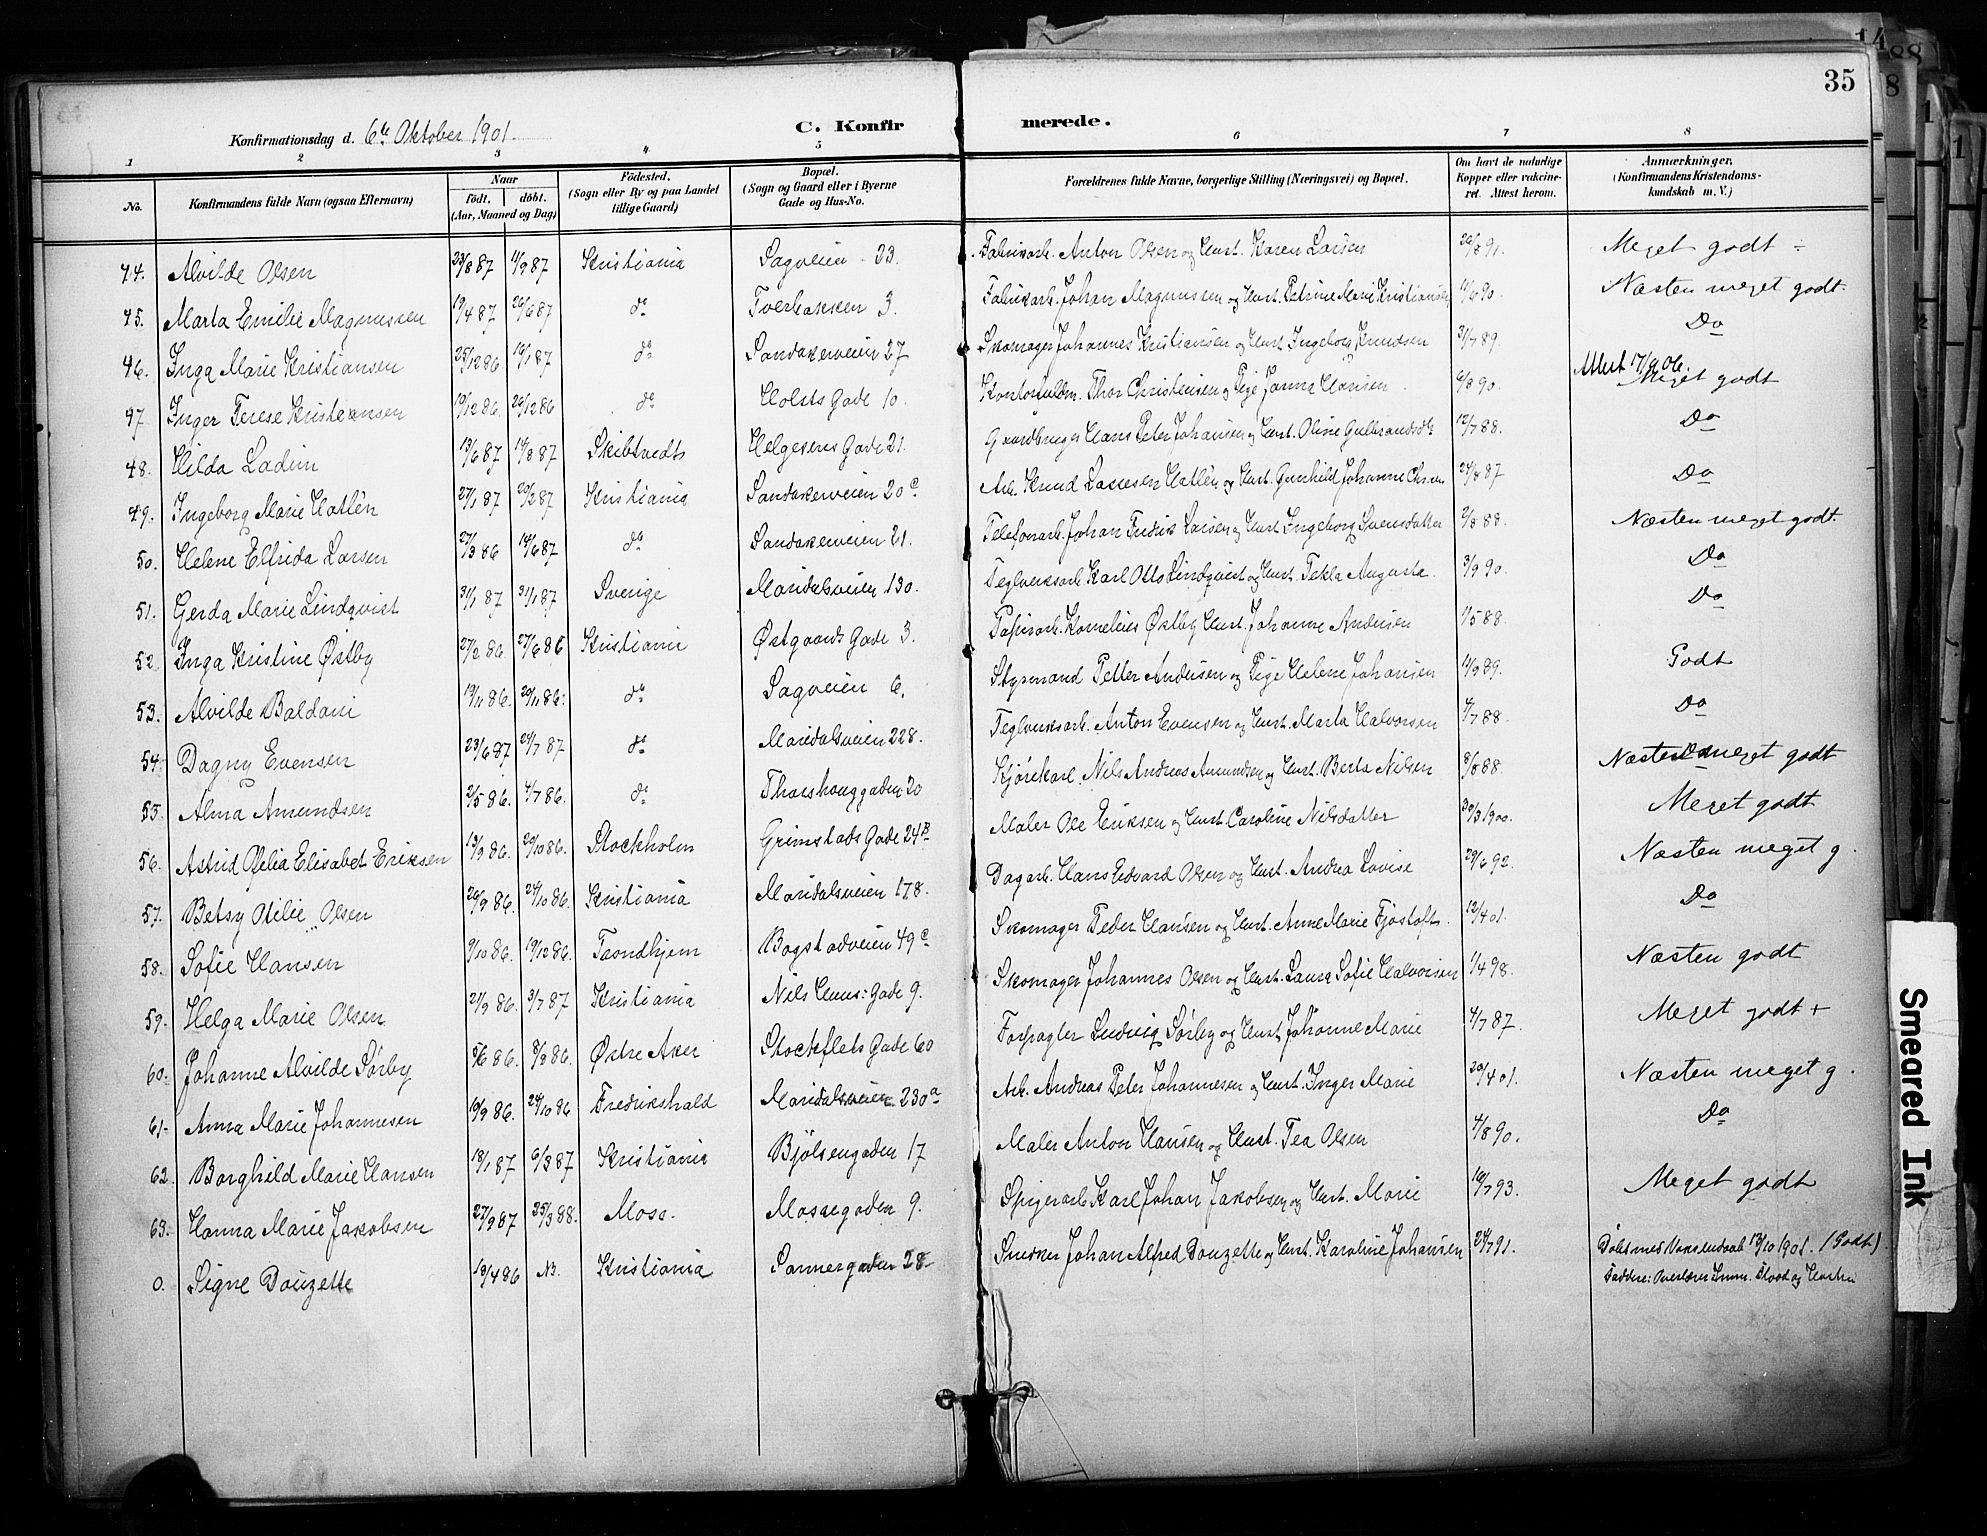 35
Konfirmationsdag d. 6te Oktober 1901. C. Konfir merede.
1 2 3 4 5 6 7 8
No. Konfirmandens fulde Navn (ogsaa Efternavn) Naar født. døbt. (Aar, Maaned og Dag) Fødested. (Sogn eller By og paa Landet tillige Gaard) Bopæl. (Sogn og Gaard eller i Byerne Gade og Hus-No. Forældrenes fulde Navne, borgerlige Stilling (Næringsvei) og Bopæl. Om havt de naturlige Kopper eller vakcineret. Attest herom. Anmærkninger. (Konfirmandens Kristendomskundskab m. V.)
44. Alvilde Olsen 23/8 87 11/9 87 Kristiania Sagveien 23. Fabrikarb. Anton Olsen og Hust. Karen Larsen 26/8 91. Meget godt ÷
45. Marta Emilie Magnussen 19/4 87 26/6 87 do Tverbakken 3. Fabrikarb. Johan Magnussen og Hust. Petrine Marie Kristiansen 11/6 90. Næsten meget godt.
46. Inga Marie Kristiansen 25/12 86. 19/1 87 do Sandakerveien 27 Skomager Johannes Kristiansen og Hust. Ingeborg Knudsen 31/7 89. Do
47 Inger Terese Kristiansen 10/12 86. 26/12 86 do Holsts Gade 10. Kontorfuldm. Thor Christensen og Pige Janna Hansen. 6/8 90. Attest 17/9 06. Meget godt
48. Hilda Ladim 13/6 87 14/8 87 Skibtvedt Helgesens Gade 21. Gaardbruger Hans Peter Johansen og Hust. Oline Gulbrandsdtr 12/7 88. Do
49. Ingeborg Marie Hatlén 27/1 87 20/2 87 Kristiania Sandakerveien 20 c. Arb. Knud Lassesen Hatlén og Hust. Gunhild Johanne 24/8 87 Do
50. Helene Elfrida Larsen 27/3 86 19/6 87 do Sandakerveien 21. Telefonarb. Johan Fredrik Larsen og Hust. Ingeborg Svensdatter 2/8 88. Næsten meget godt.
51. Gerda Marie Lindqvist 31/1 87 31/1 87 Sverige Maridalsveien 130. Teglverksarb. Karl Otto Lindqvist og Hust. Tekla Augusta. 3/9 90. Do
52. Inga Kristine Østby 27/2 86. 27/6 86 Kristiania Østgaards Gade 3. Papirarb. Kornelius Østby Hust. Johanne Andersen 1/5 88. Do
53. Alvilde Baldani 19/11 86. 20/11 86. do Sagveien 6. Styrmand Petter Andersen og Pige Helene Johansen 14/9 89. Godt
54. Dagny Evensen 23/6 87 24/7 87 do Maridalsveien 228. Teglverksarb. Anton Evensen og Hust. Marta Halvorsen 4/7 88. Do
55. Alma Amundsen 2/5 86. 4/7 86. do Thorshauggaden 20 Kjørekarl Nils Andreas Amundsen og Hust. Berta Nilsen 8/8 88. Næsten meget godt
56. Astrid Ofelia Elisabet Eriksen 13/9 86. 20/10 86. Stockholm Grimstads Gade 24 B Maler Ole Eriksen og Hust. Caroline Nilsdatter 30/3 1900. Meget godt
57. Betsy Otilie Olsen 20/9 86. 24/10 86. Kristiania Maridalsveien 178. Dagarb. Hans Edvard Olsen og Hust. Andrea Lovise 29/6 92. Næsten meget g.
58. Sofie Hansen 9/10 86. 19/12 86. Trondhjem Bogstadveien 49 c. Skomager Peder Hansen og Hust. Anne Marie Fjøstoft. 12/4 01. Do
59. Helga Marie Olsen 21/9 86. 3/7 87 Kristiania Nils Huus: Gade 9. Skomager Johannes Olsen og Hust. Laura Sofie Halvorsen 1/4 98. Næsten godt
60. Johanne Alvilde Sørby 5/6 86. 8/8 86. Østre Aker Stockflets Gade 60 Forpagter Ludvig Sørby og Hust. Johanne Marie 4/7 87. Meget godt +
61. Anna Marie Johannesen 19/9 86. 24/10 86 Fredrikshald Maridalsveien 230 a Arb. Andreas Peter Johannesen og Hust. Inger Marie 20/4 01. Næsten meget g.
62. Borghild Marie Hansen 18/1 87 6/3 87 Kristiania Bjølsengaden 17 Maler Anton Hansen og Hust. Tea Olsen 4/8 90. Do
63. Hanna Marie Jakobsen 27/9 87 25/3 88. Moss. Mossegaden 9. Spigerarb. Karl Johan Jakobsen og Hust. Marie 10/7 93. Meget godt
0. Signe Douzette 19/4 86 N3. Kristiania Sannergaden 28 Snedker Johan Alfred Douzette og Hust. Karoline Johansen 24/7 91. Døbt med 13/10 1901. (Godt)
Faddere: Overlærer Flood og Hustru
Smeared Ink